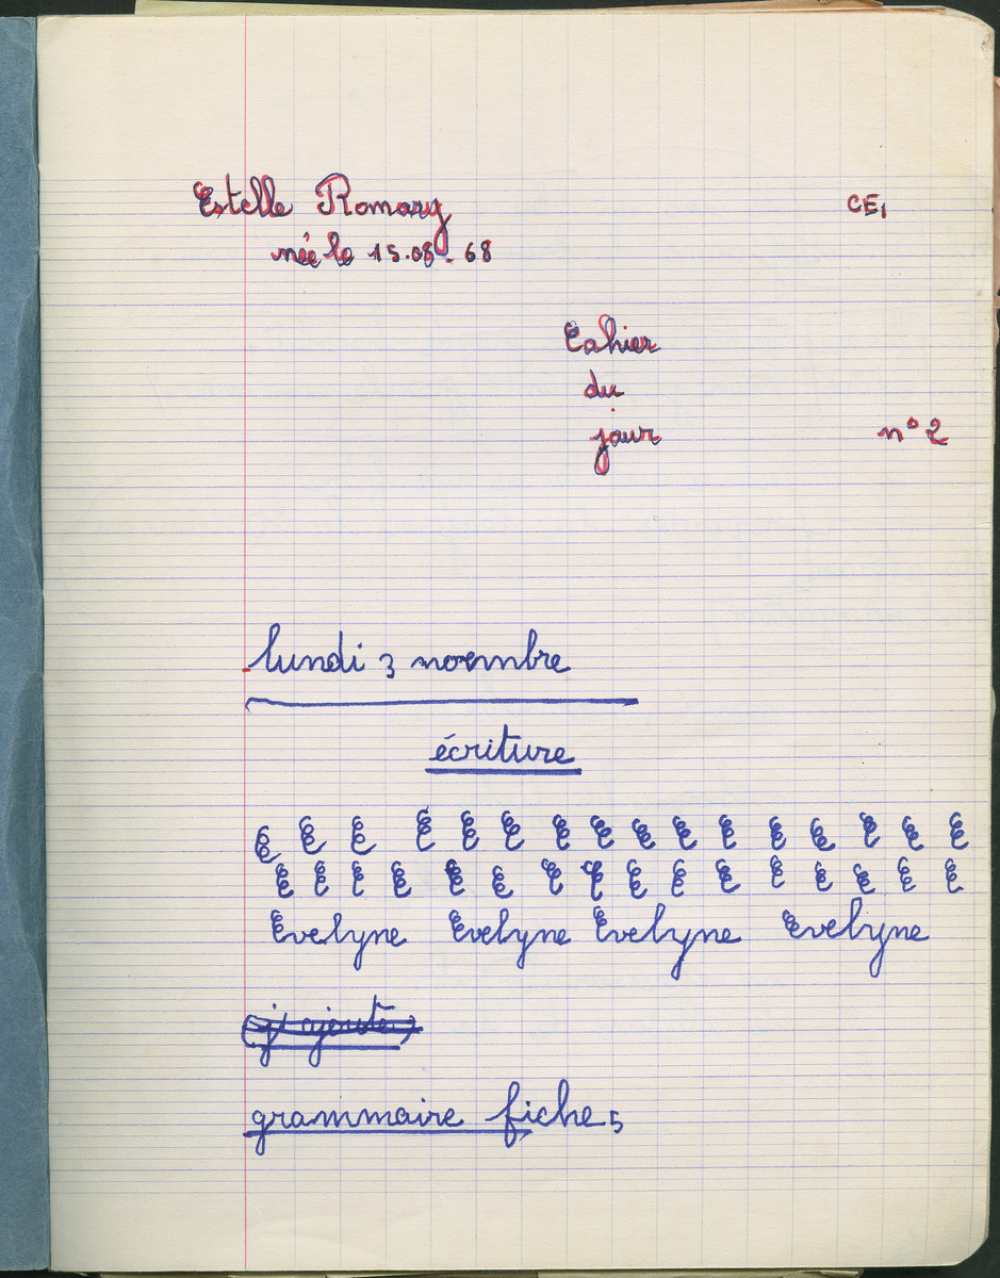 Estelle Romary CE1
née le 15.08.68
Cahier
du
jour n° 2
lundi 3 noembre
écriture
E E E E E E E E E E E E E E E E
E E E E E E E E E E E E E E E E
Evelyne Evelyne Evelyne Evelyne
j'ajoute
grammaire fiche 5